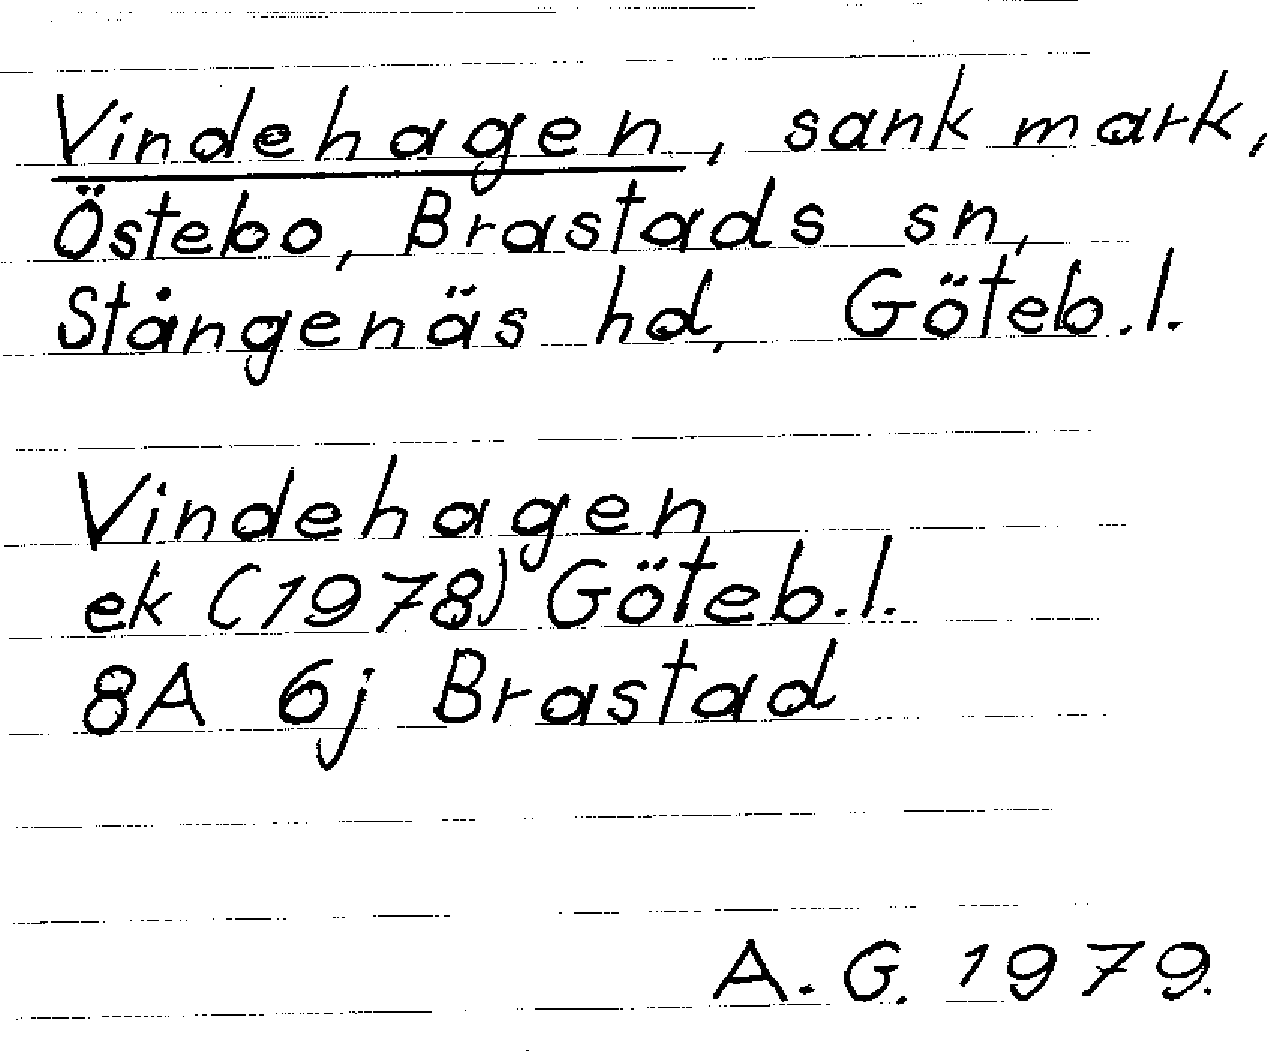 Vindehagen, sank mark,
Östebo, Brastads sn,
Stångenäs hd, Göteb.l.
Vindehagen
ek (1978) Göteb.l.
8A 6j Brastad
A.G. 1979.